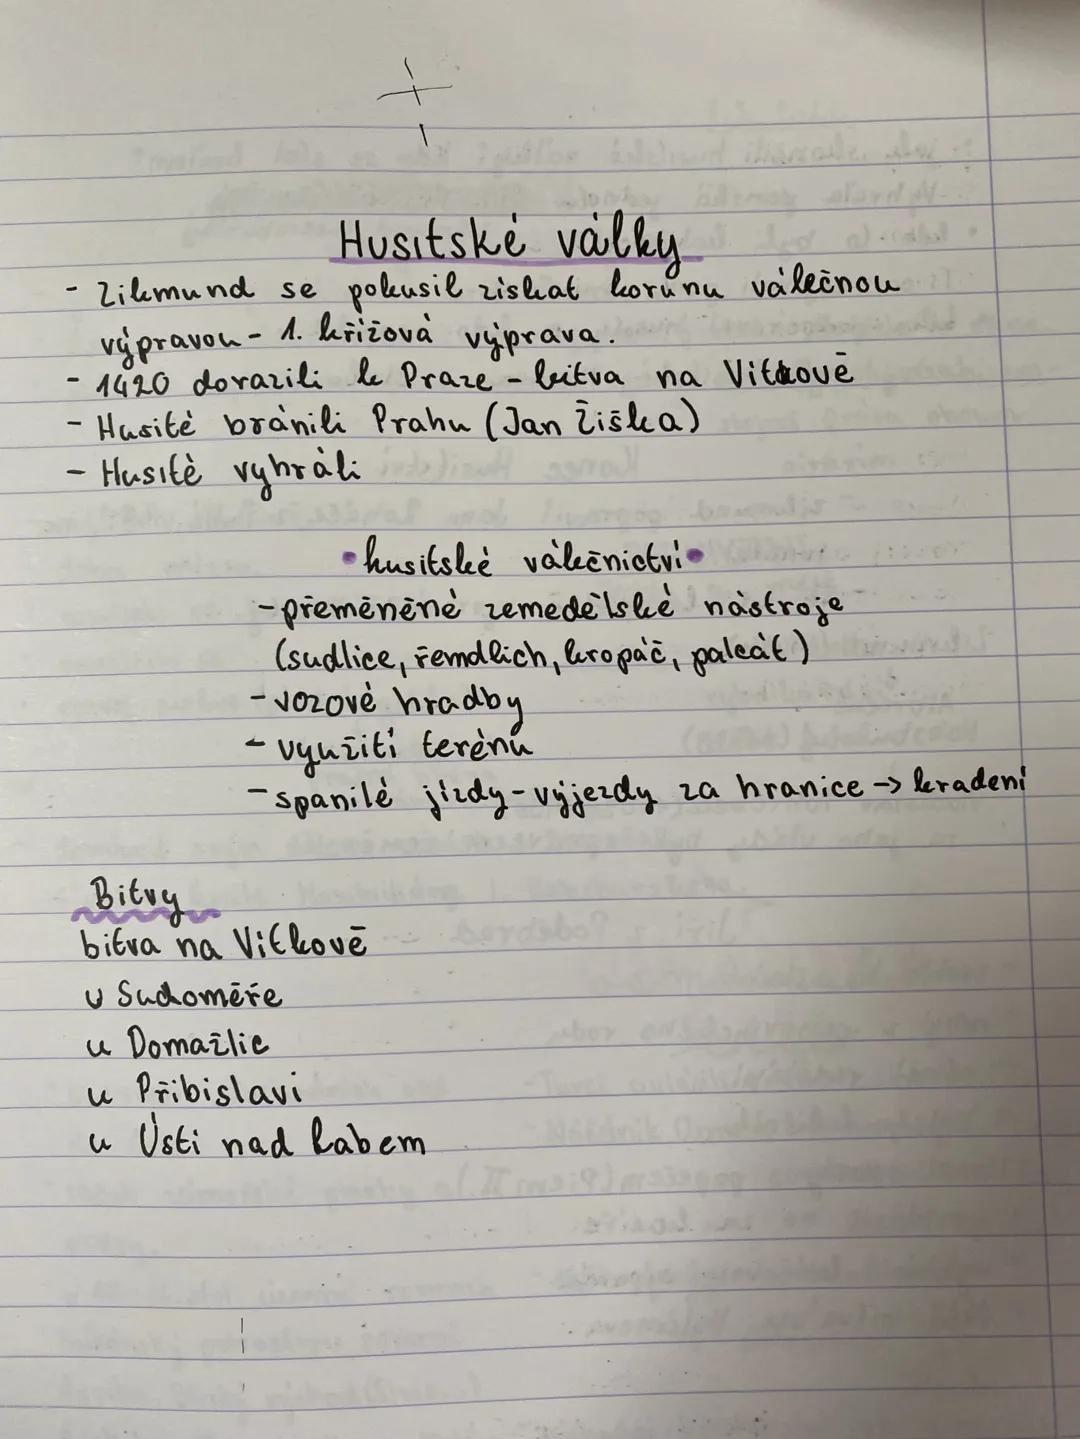 Husitské války
- Zikmund se pokusil získat korunu válečnou
výpravou - 1. křížová výprava.
- 1420 dorazili k Praze - bitva na Vítkově
- Husité bránili Prahu (Jan Žižka)
- Husité vyhráli
• husitské válečnictví •
- přeměněné zemedělské nástroje
(sudlice, řemdich, kropáč, palcát)
- vozové hradby
- využití terénu
- spanilé jízdy - výjezdy za hranice → kradení
Bitvy
bitva na Vítkově
u Sudoměře
u Domažlic
u Přibislavi
u Ústí nad Labem